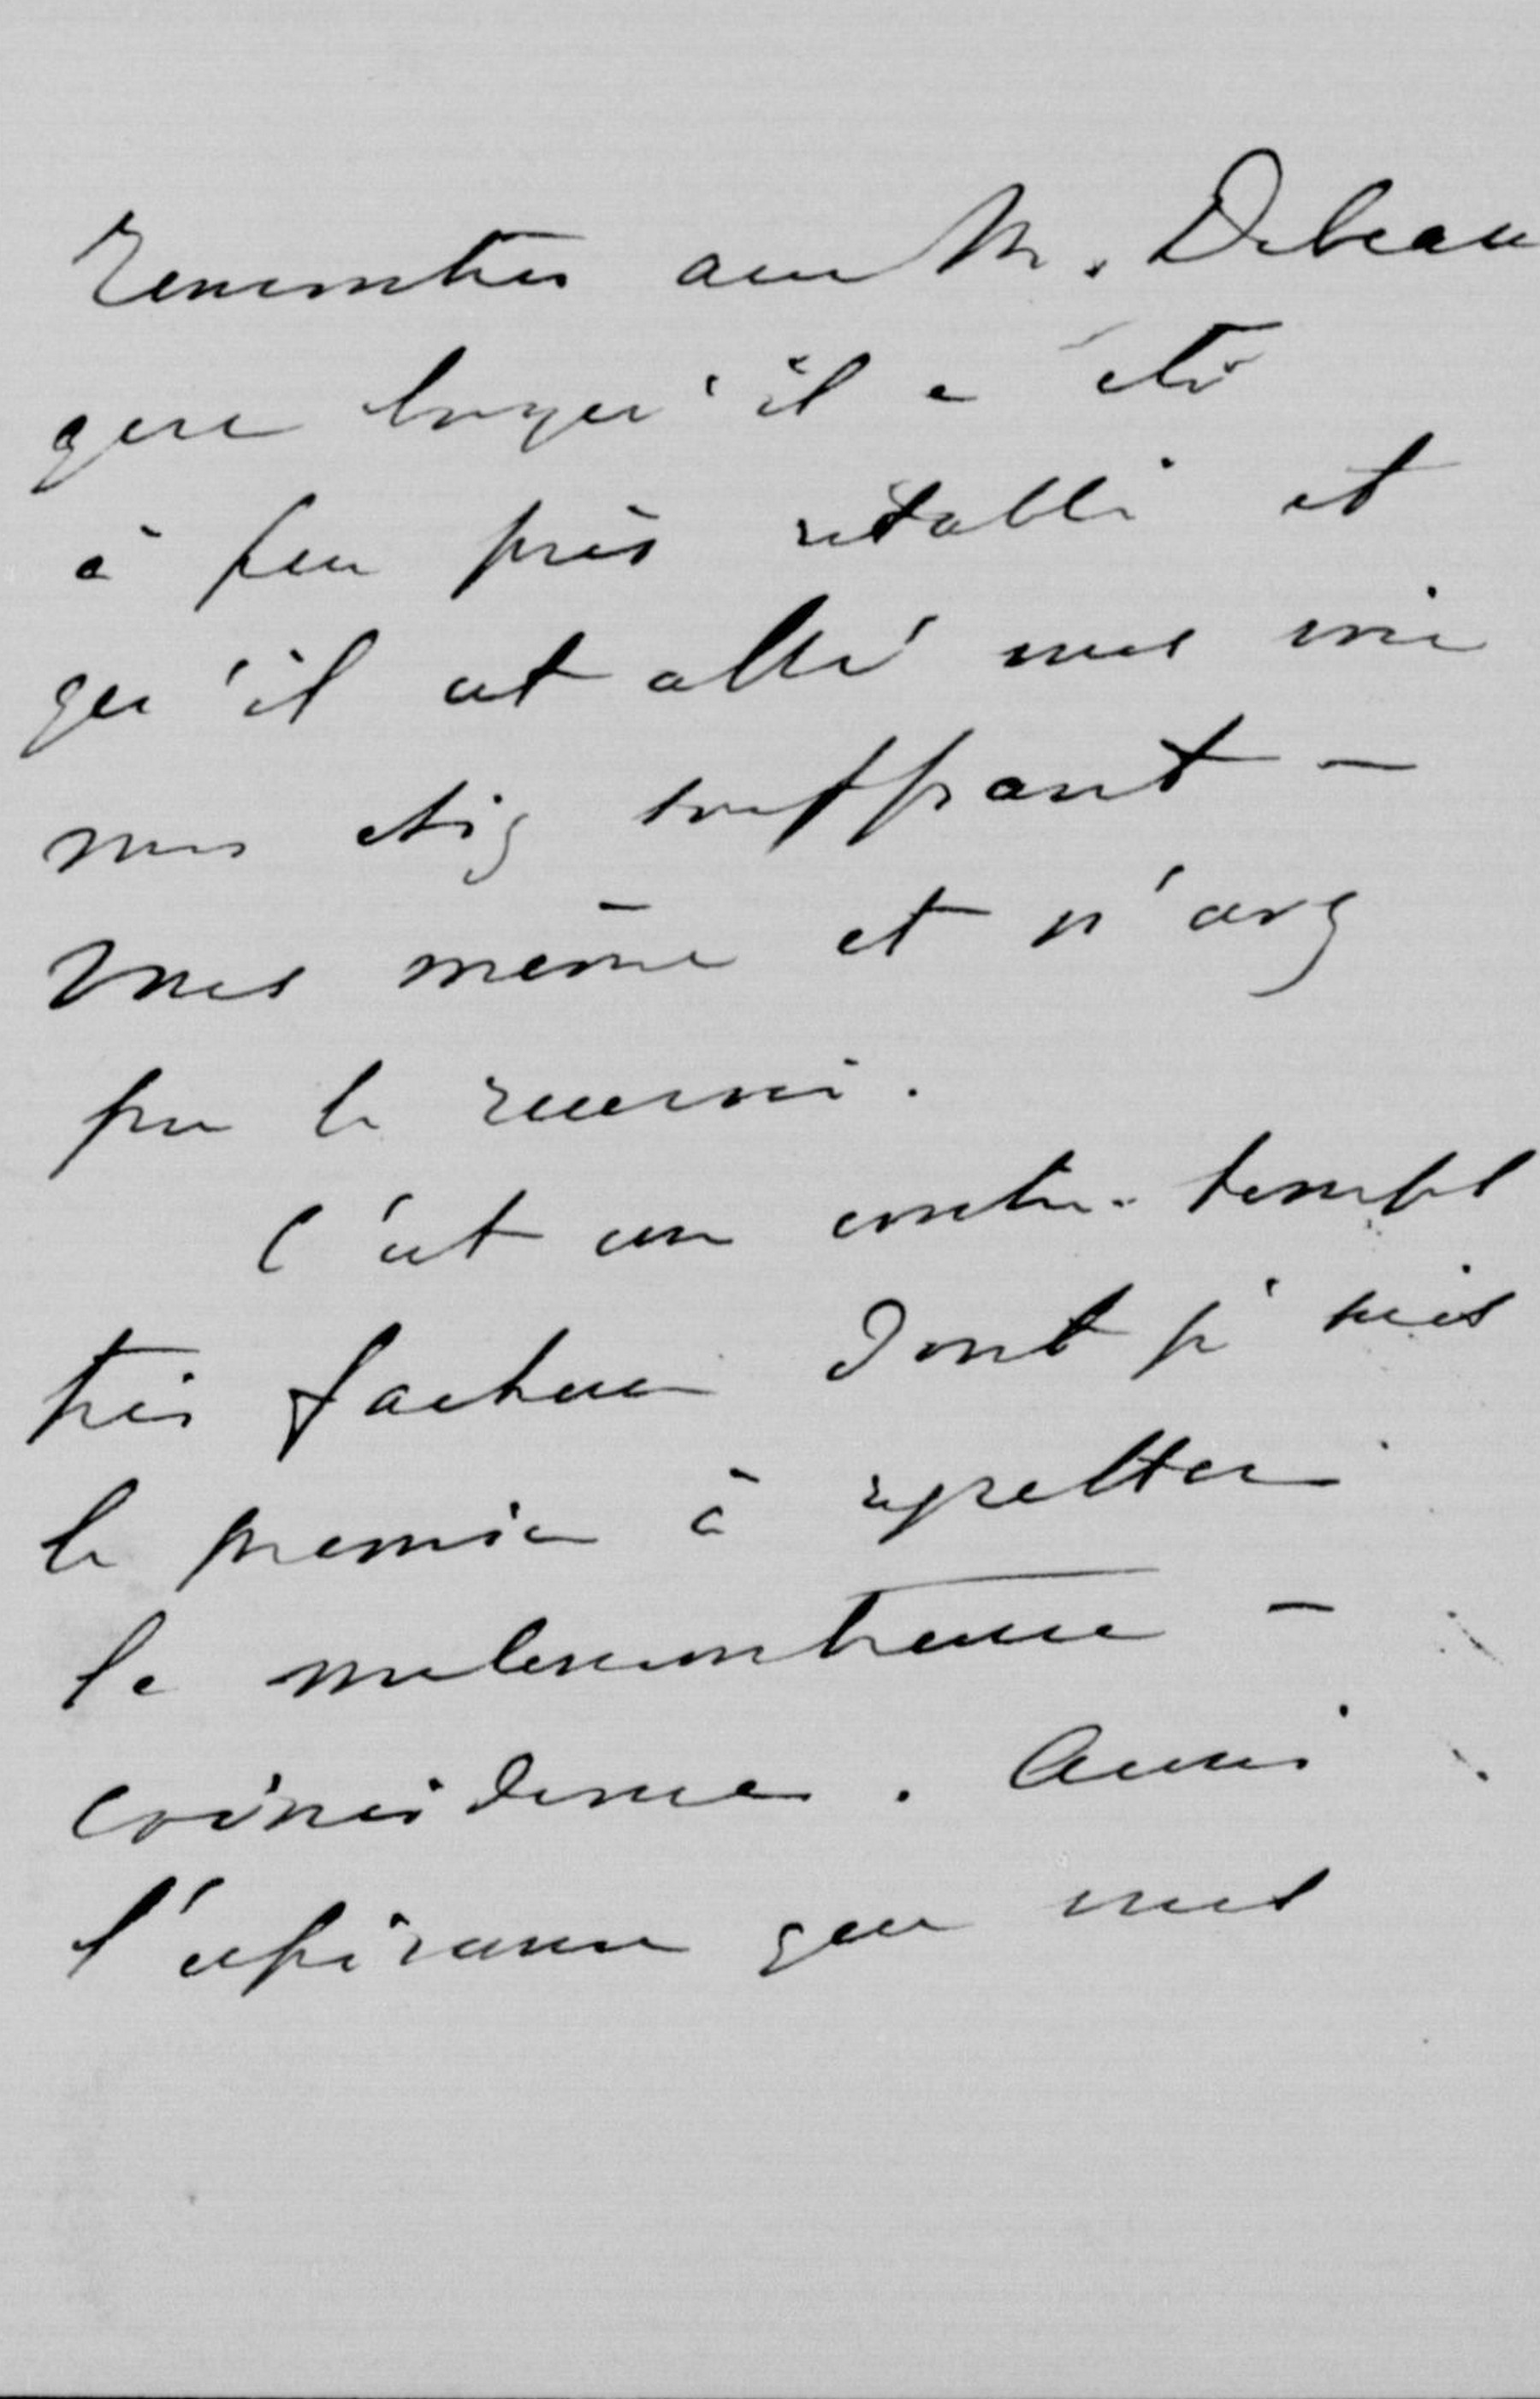 rencontrer avec M. Debeau
que lorsqu'il a été
à peu près rétabli et
qu'il est allé vous voir
vous étiez souffrant -
vous même et n'avez
pu le recevoir.
C'est un contre-temps
très facheux dont je suis
le premier à regretter
la malencontreuse -
coïncidence. Aussi
l'espérance que vous